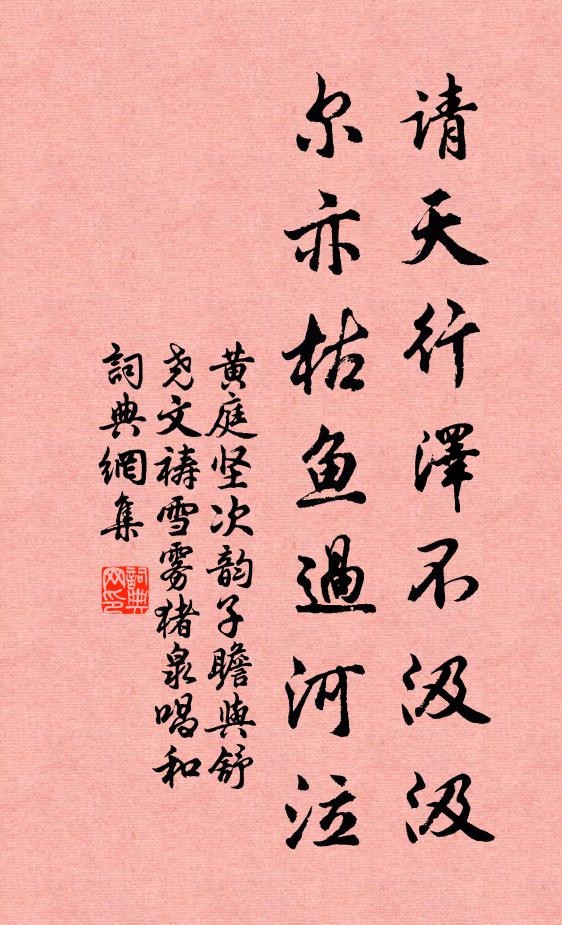 请天行澤不汲汲
尔亦枯鱼過河泣
黄庭坚次韵子瞻與舒
尧文祷雪雾猪泉唱和
詞典網集
詞典网印